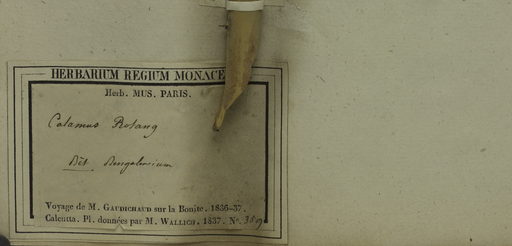 HERBARIUM REGIUM MONACE
Herb. MUS. PARIS.
Calamus Rotang
Bĕt Bengalensium
Voyage de M. GAUDICHAUD sur la Bonite. 1836-37.
Calcutta. Pl. données par M. WALLICH. 1837. No.